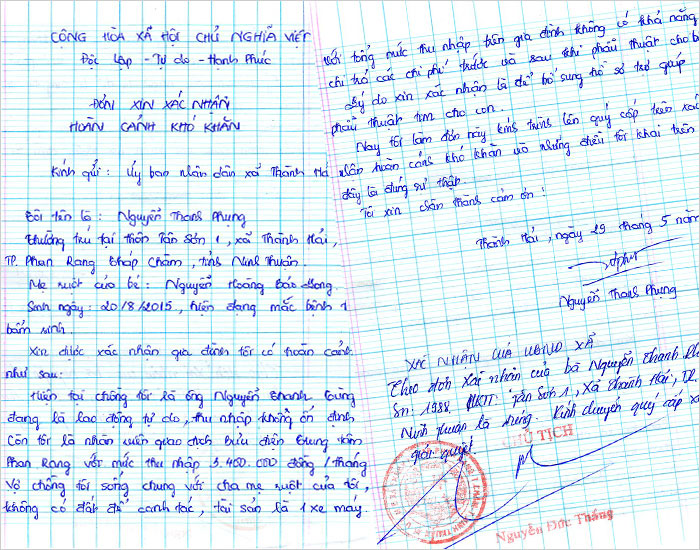 CỘNG HÒA XÃ HỘI CHỦ NGHĨA VIỆT
Độc lập - Tự do - Hạnh Phúc
ĐƠN XIN XÁC NHẬN
HOÀN CẢNH KHÓ KHĂN
Kính gửi : Ủy ban nhân dân xã Thành Hả
Tôi tên là : Nguyễn Thanh Phụng
Thường trú tại thôn Tân Sơn 1, xã Thành Hải,
TP. Phan Rang Tháp Chàm, tỉnh Ninh Thuận.
Mẹ ruột của bé : Nguyễn Hoàng Bảo
Sinh ngày : 20/8/2015, hiện đang mắc bệnh t
bẩm sinh.
Xin được xác nhận gia đình tôi có hoàn cản
như sau:
Hiện tại chồng tôi là ông Nguyễn Thanh Tùng
đang là lao động tự do, thu nhập không ổn định
Còn tôi là nhân viên giao dịch bưu điện trung tâm
Phan Rang với mức thu nhập 3.400.000 đồng / tháng
Vợ chồng tôi sống chung với cha mẹ ruột của tôi,
không có đất để canh tác, tài sản là 1 xe máy.
với tổng mức thu nhập trên gia đình không có khả năng
chi trả các chi phí trước và sau khi phẫu thuật cho b
Lý do xin xác nhận là để bổ sung hồ sơ trợ giúp
phẫu thuật tim cho con.
Nay tôi làm đơn này kính trình lên quý cấp trên xác
nhận hoàn cảnh khó khăn và những điều tôi khai trên
đây là đúng sự thật.
Tôi xin chân thành cảm ơn !
Thành Hải, ngày 29 tháng 5 năm
Nguyễn Thanh Phụng
XÁC NHẬN CỦA UBND XÃ
Theo đơn xác nhận của bà Nguyễn Thanh Ph
Sn: 1988. HKTT: Tân Sơn 1, Xã Thành Hải, TP.
Ninh Thuận là đúng. Kính chuyển quý cấp x
giải quyết
CHỦ TỊCH
Nguyễn Đức Thắng